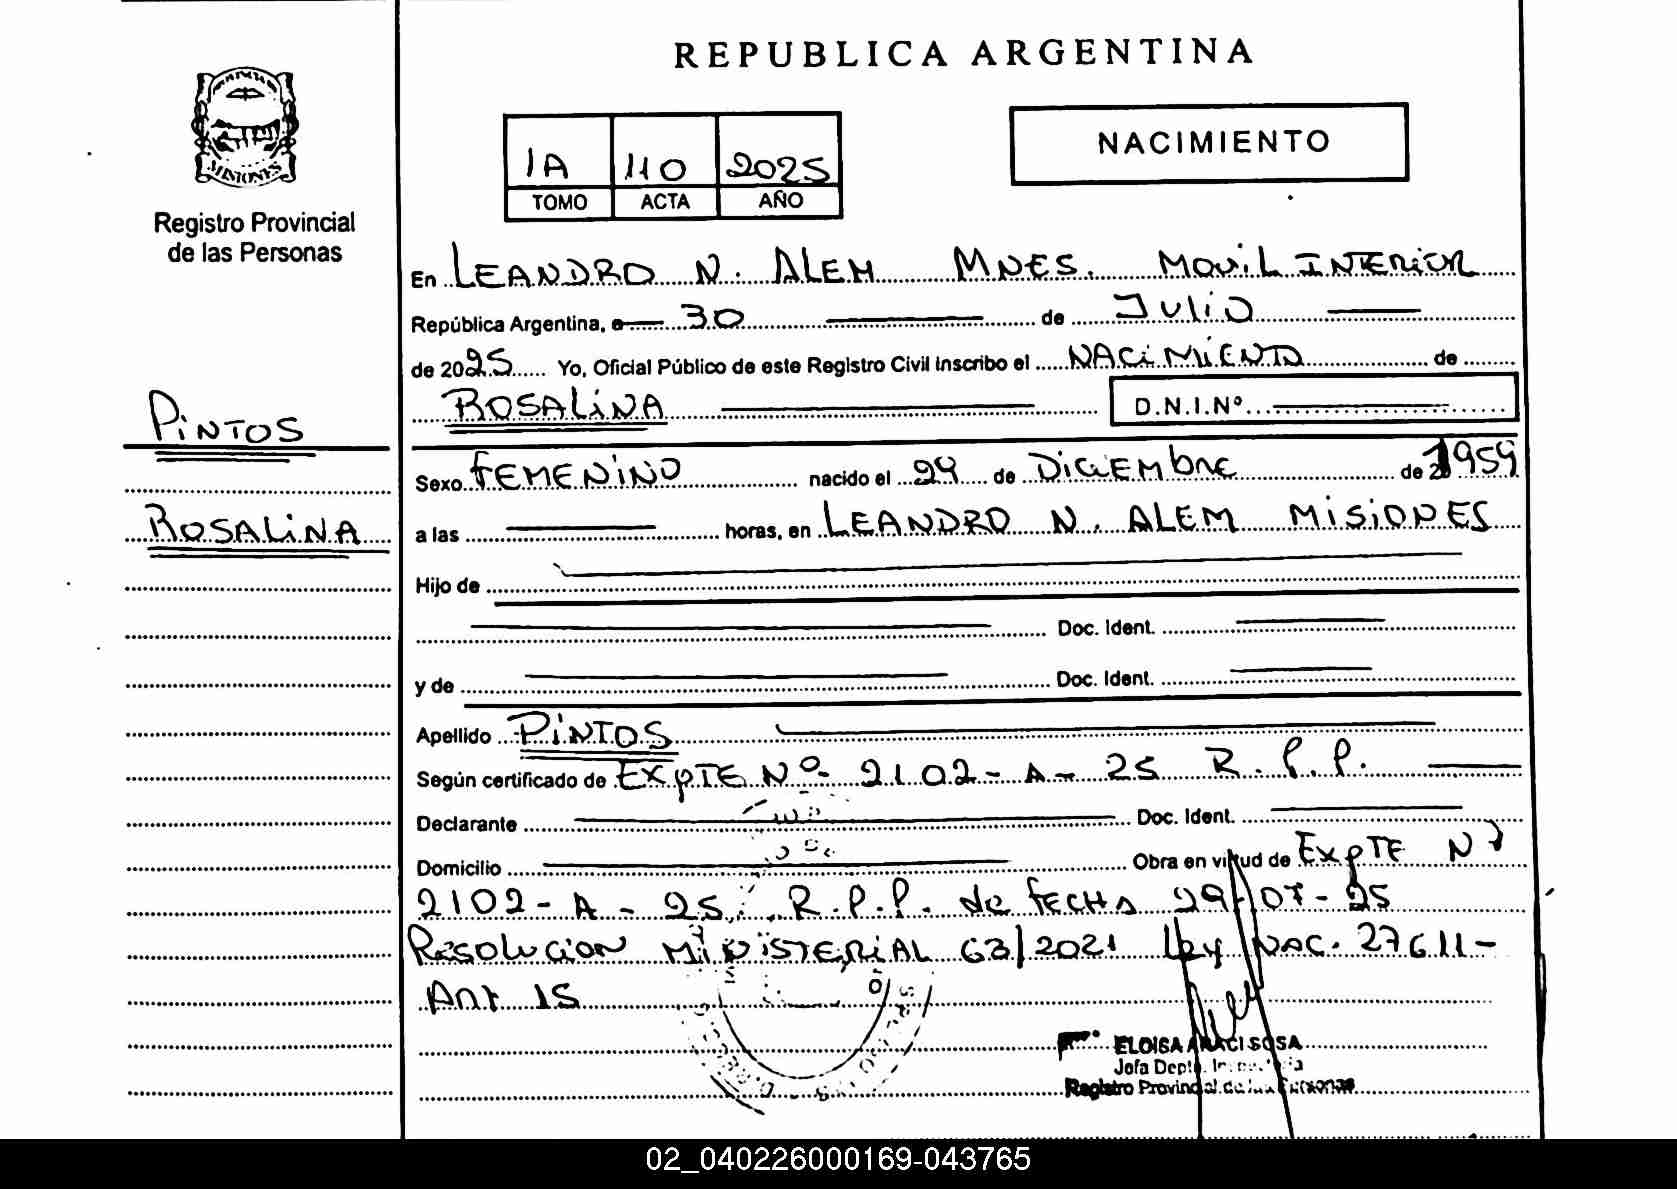 REPUBLICA ARGENTINA
MISIONES
Registro Provincial
de las Personas
1A 110 2025
TOMO ACTA AÑO
NACIMIENTO
En LEANDRO N. ALEM MNES. MOVIL INTERIOR
República Argentina, a 30 de JULIO
de 2025 Yo, Oficial Público de este Registro Civil Inscribo el NACIMIENTO de
ROSALINA D.N.I.Nº
PINTOS
ROSALINA
Sexo FEMENINO nacido el 24 de DICIEMBRE de 1959
a las horas, en LEANDRO N. ALEM MISIONES
Hijo de
Doc. Ident.
y de Doc. Ident.
Apellido PINTOS
Según certificado de EXPTE Nº 2102-A-25 R.P.P.
Declarante Doc. Ident.
Domicilio Obra en virtud de EXPTE Nº
2102-A-25 R.P.P. de FECHA 29-07-25
RESOLUCION MINISTERIAL 63/2021 Ley NAC. 27611-
Art 15
ELOISA ARACI SOSA
Jefa Depto.
Registro Provincial de las Personas
02_040226000169-043765